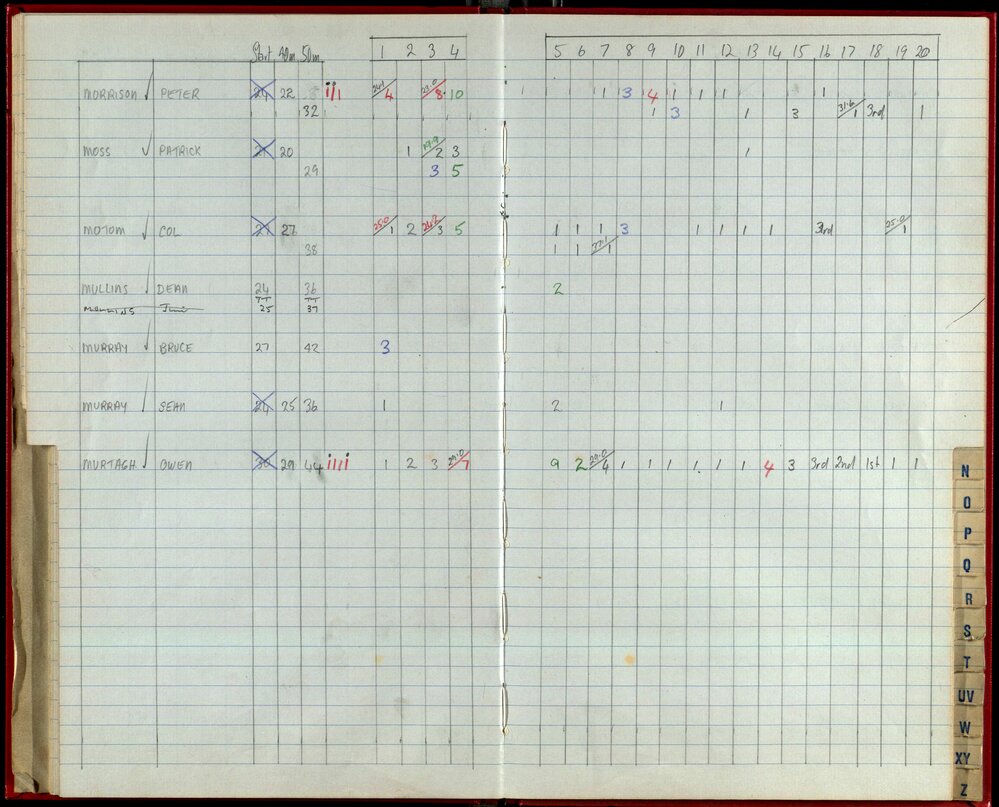 Start 30m 50m 1 2 3 4 5 6 7 8 9 10 11 12 13 14 15 16 17 18 19 20
MORRISON ✓ PETER 24 22 4 8 10 1 3 4 1 1 1 1
32 1 3 1 3 31.6/1 3rd 1
MOSS ✓ PATRICK 21 20 1 2 3 1
29 3 5
MOTOM ✓ COL 27 25.0/1 2 3 5 1 1 1 3 1 1 1 1 3rd 25.0/1
38 1 1 1
MULLINS ✓ DEAN 24 36 2
MULLINS 25 37
MURRAY ✓ BRUCE 27 42 3
MURRAY ✓ SEAN 24 25 36 1 2 1
MURTAGH ✓ OWEN 30 29 44 1 2 3 29.0/7 9 2 29.0/4 1 1 1 1 1 1 4 3 3rd 2nd 1st 1 1
N
O
P
Q
R
S
T
UV
W
XY
Z